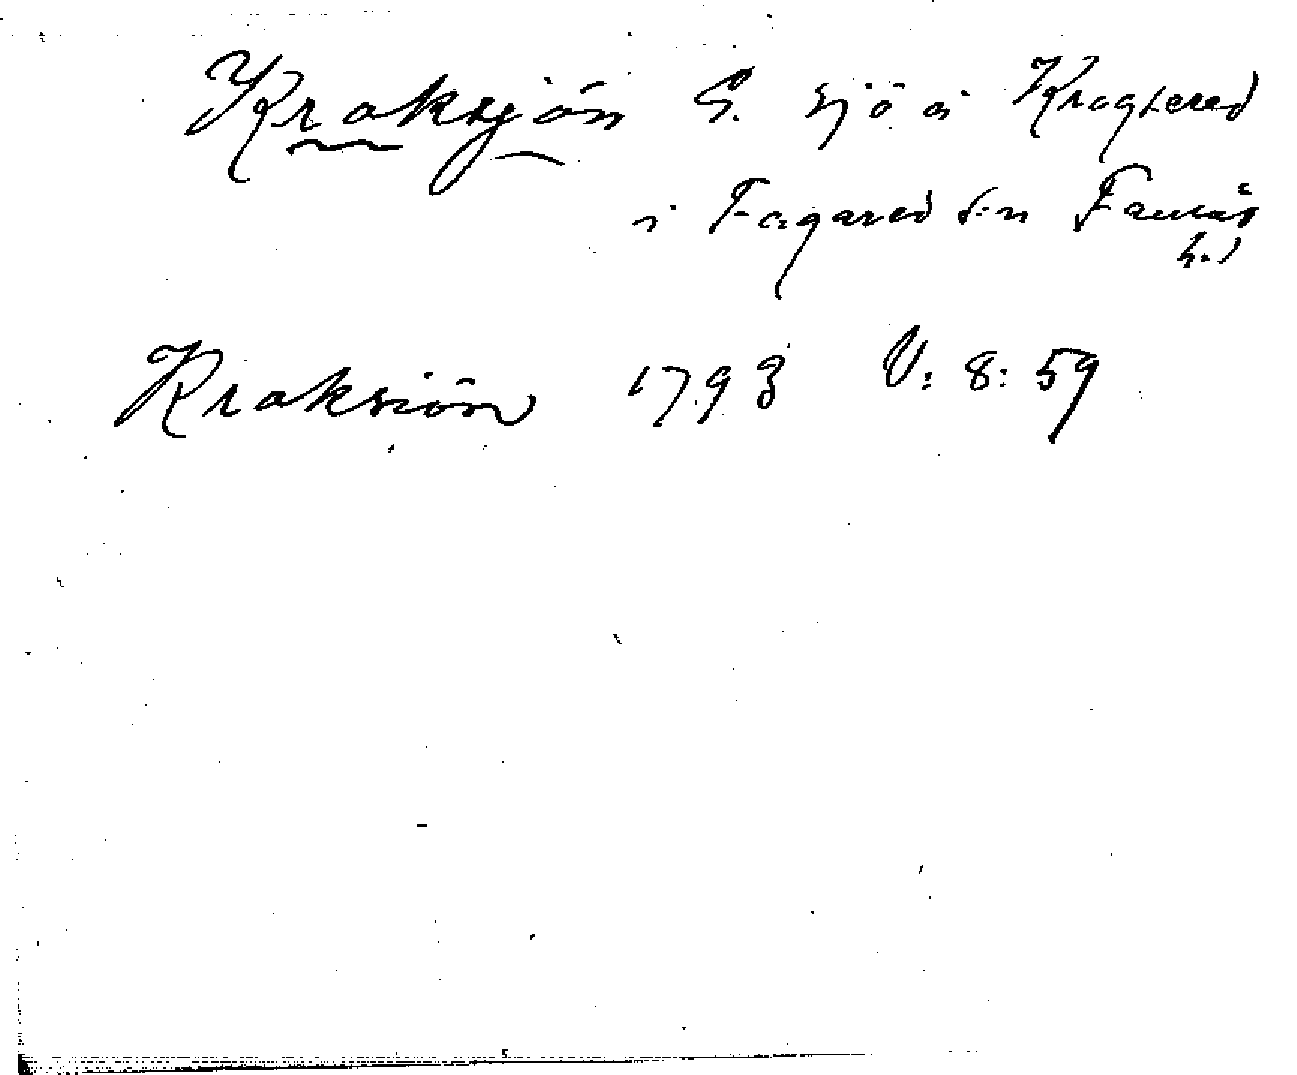 Kroksjön S. sjö i Kragered
i Fagared s:n Faurås
h.)
Kroksiön 1793 V: 8: 59